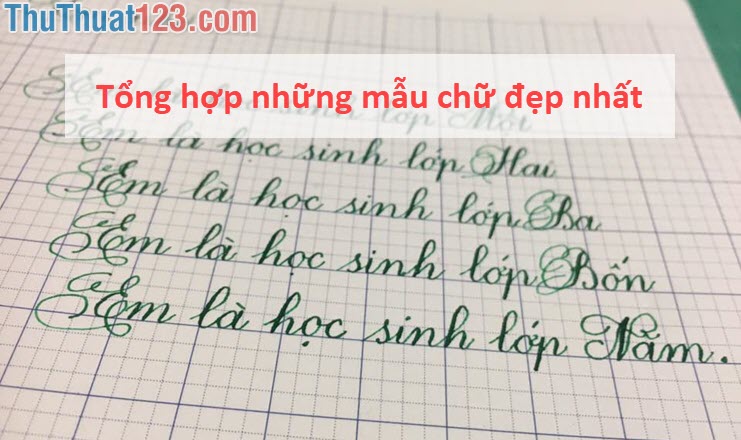 ThuThuat123.com
Tổng hợp những mẫu chữ đẹp nhất
lớp Một
Em là học sinh lớp Hai
Em là học sinh lớp Ba
Em là học sinh lớp Bốn
Em là học sinh lớp Năm.